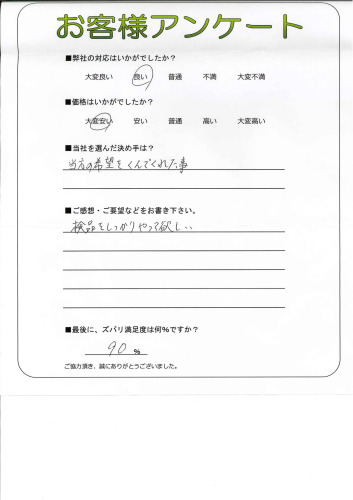 お客様アンケート
■弊社の対応はいかがでしたか？
大変良い 良い 普通 不満 大変不満
■価格はいかがでしたか？
大変安い 安い 普通 高い 大変高い
■当社を選んだ決め手は？
当方の希望をくんでくれた事
■ご感想・ご要望などをお書き下さい。
検品をしっかりやって欲しい
■最後に、ズバリ満足度は何%ですか？
90 %
ご協力頂き、誠にありがとうございました。